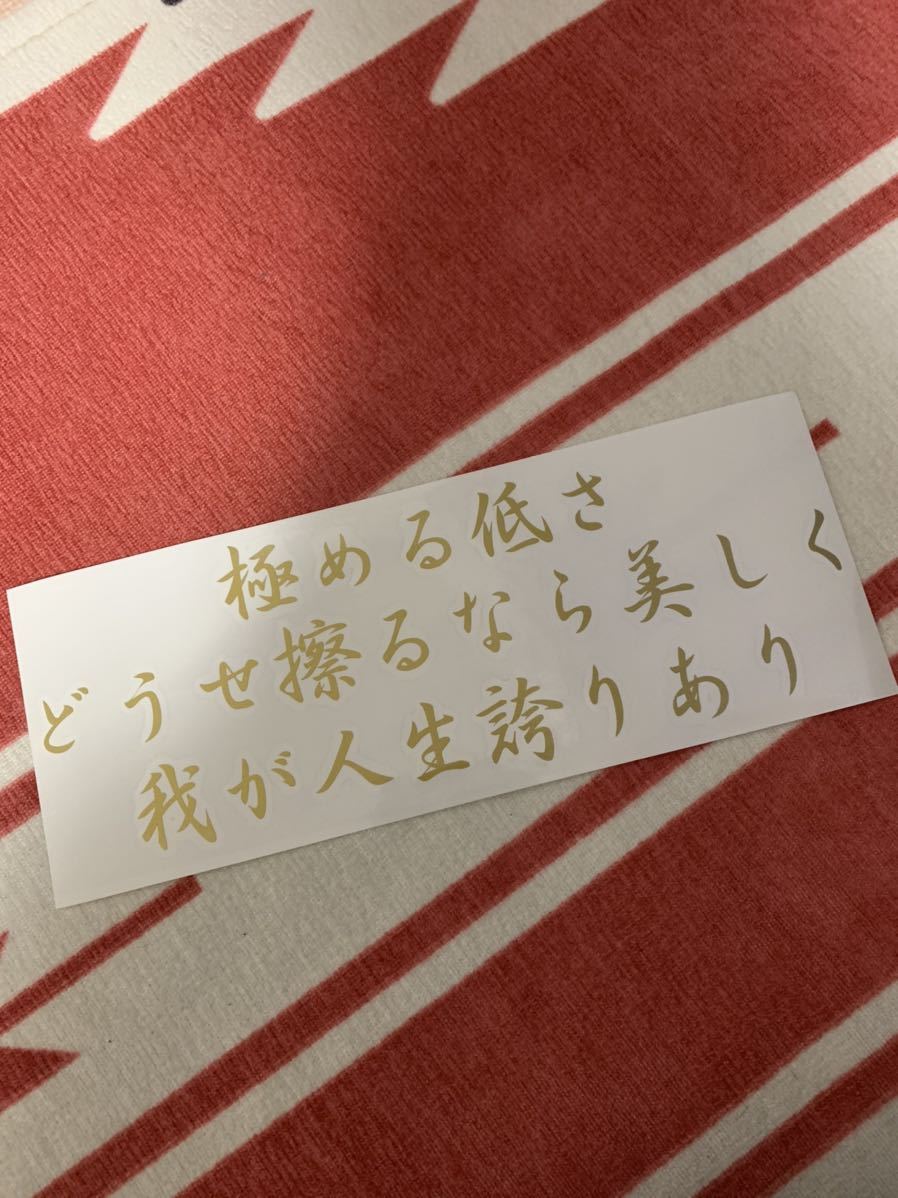 極める低さ
どうせ擦るなら美しく
我が人生誇りあり